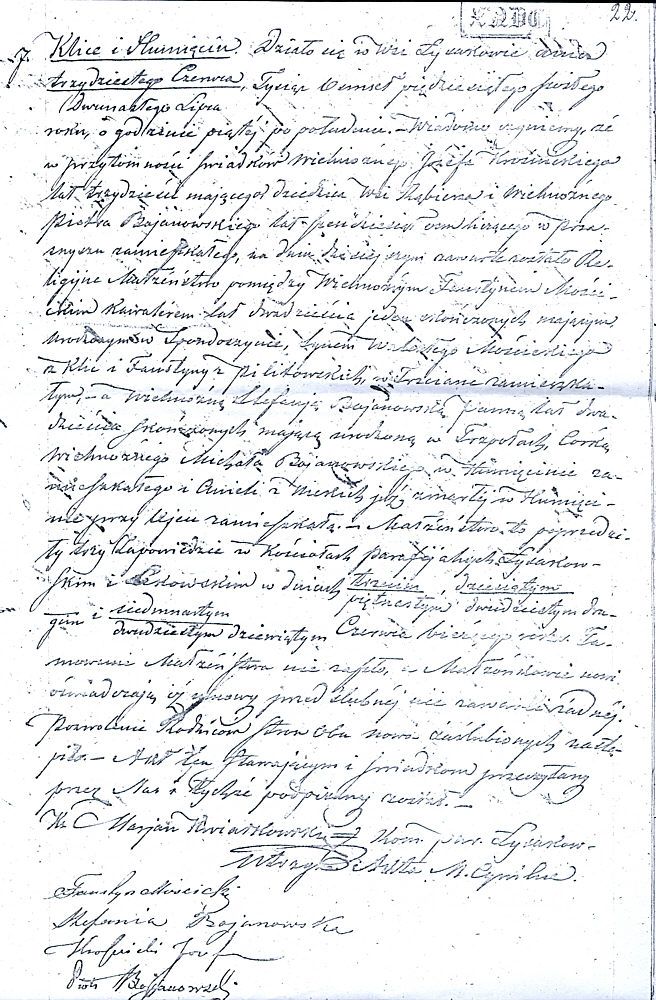 22.
7. Klice i Humięcin. Działo się w Wsi Łysakowie dnia
trzydziestego Czerwca, Tysiąc osmset pięćdziesiątego szóstego
/Dwunastego Lipca
roku, o godzinie piątej po południu. – Wiadomo czyniemy, że
w przytomności świadków Wielmożnego Józefa
lat trzydzieści mającego dziedzica Wsi i Wielmożnego
Piotra Bojanowskiego lat ośm liczącego w
zamieszkałego, na dniu dzisiejszym zawarte zostało Re-
ligijne Małżeństwo pomiędzy Wielmożnym Faustynem Mości-
ckim kawalerem lat dwadzieścia jeden skończonych mającym
urodzonym w synem Walentego Mościckiego
z Klic i Faustyny z w zamieszka-
łym, – a Wielmożną Stefanią Bojanowską panną lat dwa-
dzieścia skończonych mającą urodzoną w Córką
Wielmożnego Michała Bojanowskiego w Humięcinie za-
mieszkałego i Anieli z już zmarłej w Humięci-
nie przy Ojcu zamieszkałą. – Małżeństwo to poprzedzi-
ły trzy Zapowiedzie w Kościołach parafijalnych Łysakow-
skim i w dniach trzecim, dziesiątym
piętnastym dwudziestym dru-
gim i siedmnastym
dwudziestym dziewiątym Czerwca bieżącego roku. Ta-
mowanie Małżeństwa nie zaszło, – Małżonkowie nowi
oświadczają iż umowy przedślubnej nie zawarli żadnej.
Pozwolenie Rodziców Stron obu nowo zaślubionych nastą-
piło. – Akt ten Stawającym i świadkom przeczytany
przez Nas i tychże podpisany został. –
Ks Marjan Kwiatkowski Kom. par. Łysakow-
Akta Cywilne.
Faustyn Mościcki
Stefania Bojanowska
Józef
Piotr Bojanowski